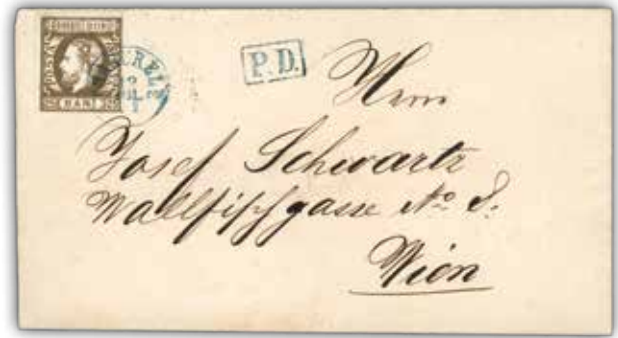 POSTA
25 BANI 25
P.D.
Herrn
Josef Schwartz
Wallfischgasse No 8.
Wien